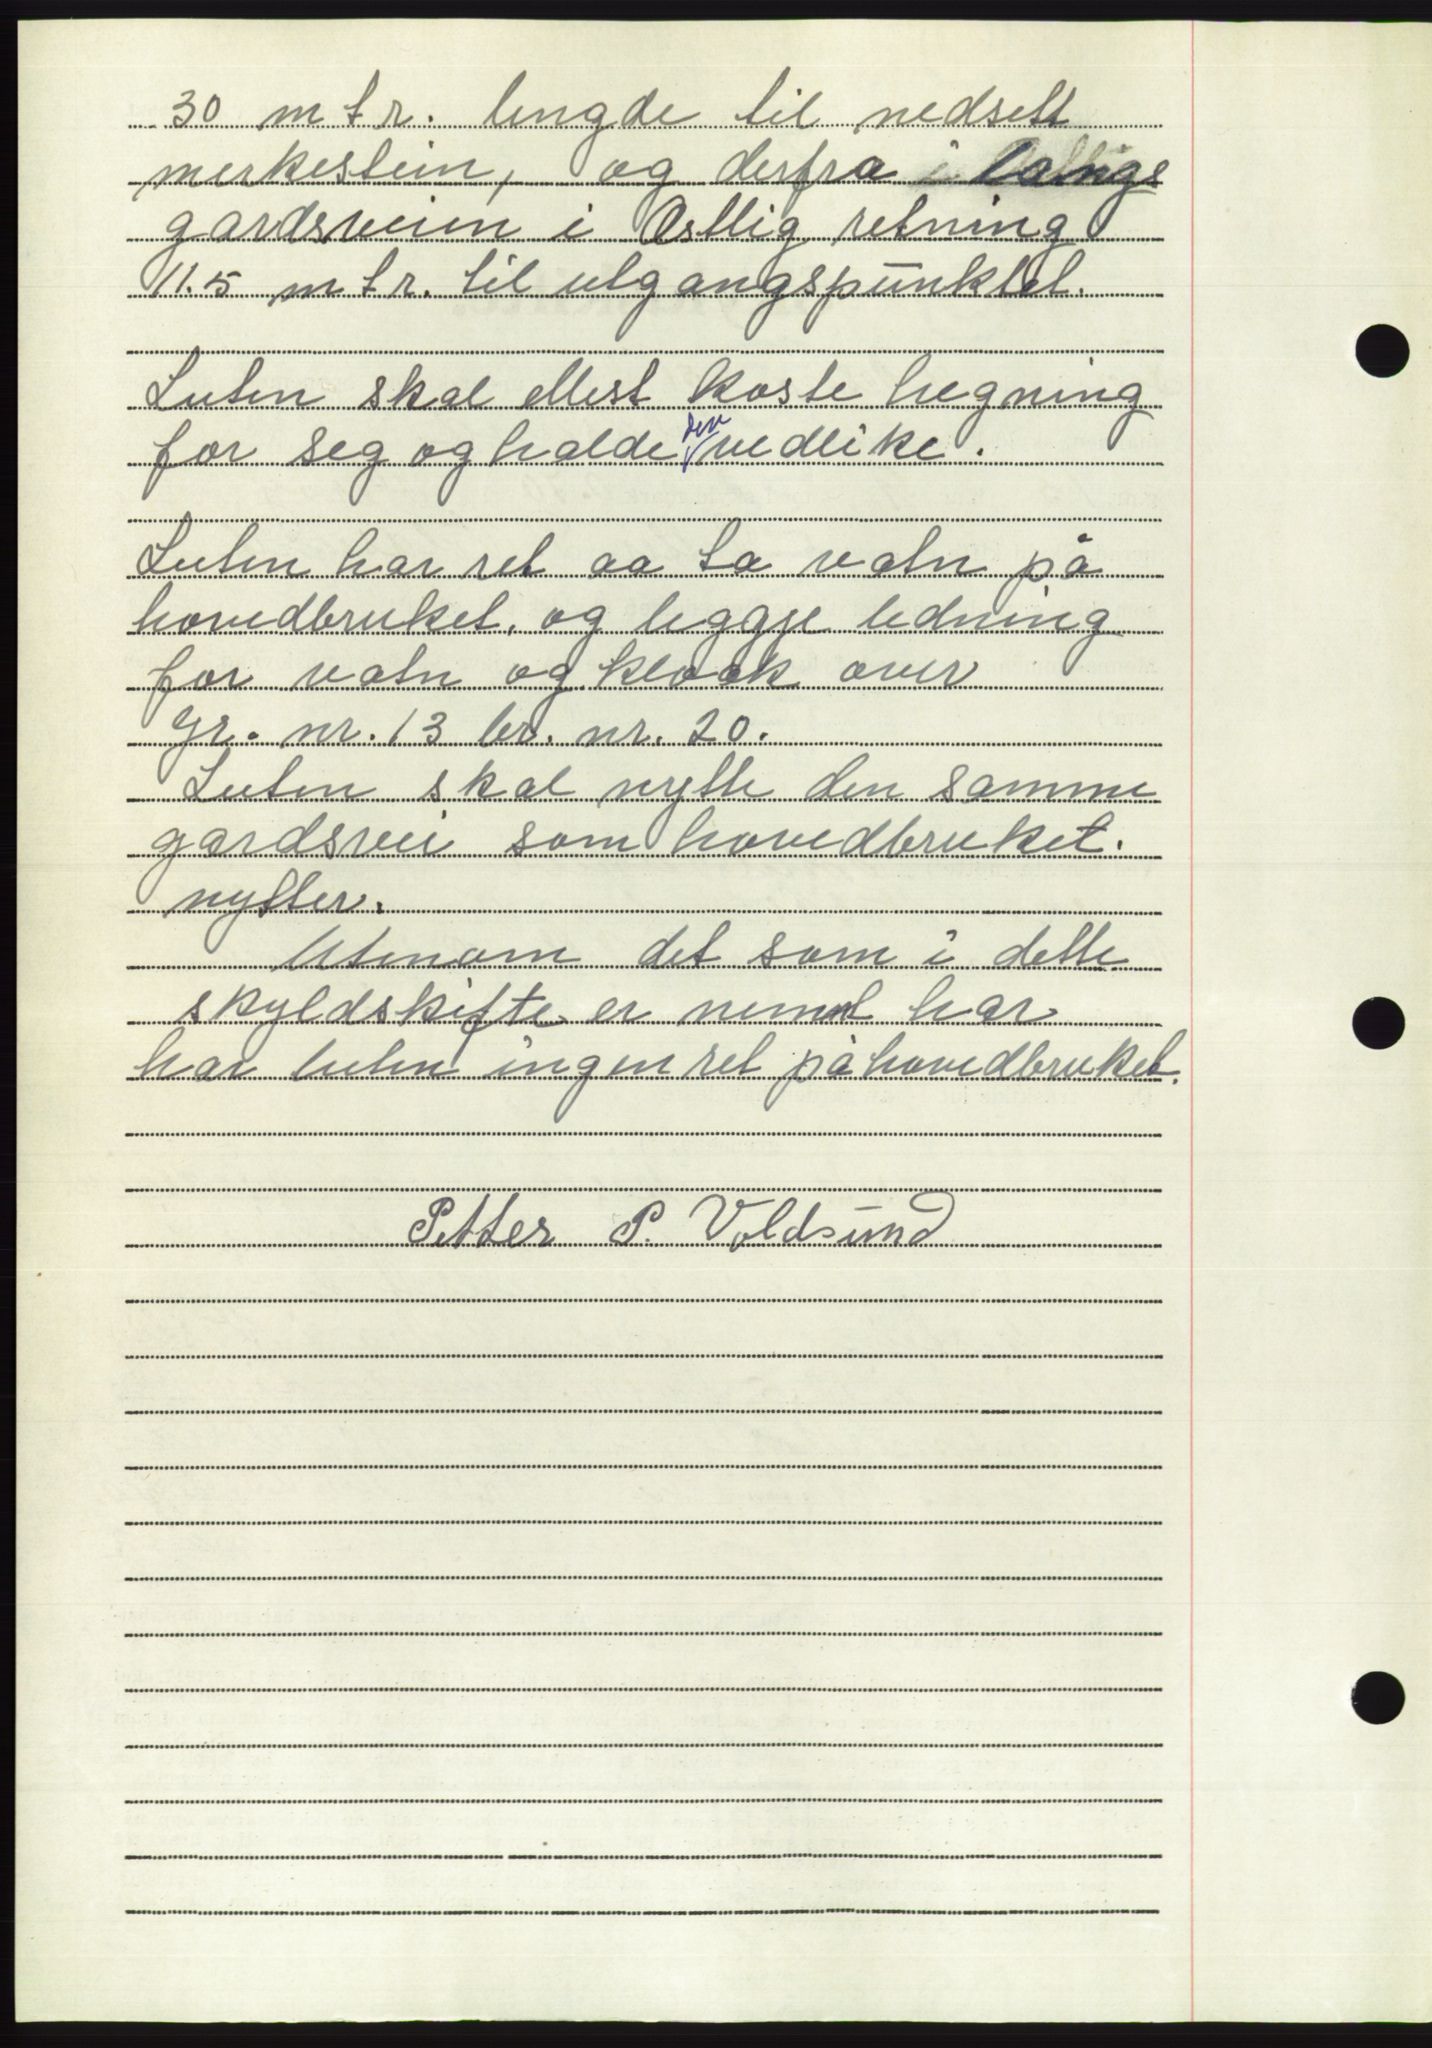 30 mtr. lengde til nedsett
merkestein, og derfra i langs
gardsveien i Østlig retning
11.5 mtr. til utgangspunktet.
Luten skal ellest koste hegning
for seg og halde den vedlike.
Luten har ret aa ta vatn på
hovedbruket, og leggje ledning
for vatn og kloak over
Gr. nr. 13 br. nr. 20.
Luten skal nytte den samme
gardsvei som hovedbruket.
nytter.
Utenom det som i dette
skyldskifte er nemnt har
har luten ingen ret på hovedbruket.
Petter P. Voldsund